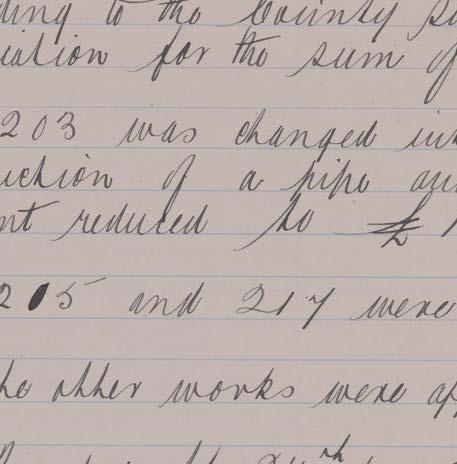 ding to the County Su
iation for the sum of
203 was changed int
uction of a pipe an
nt reduced to £1
205 and 217 were
he other works were ap